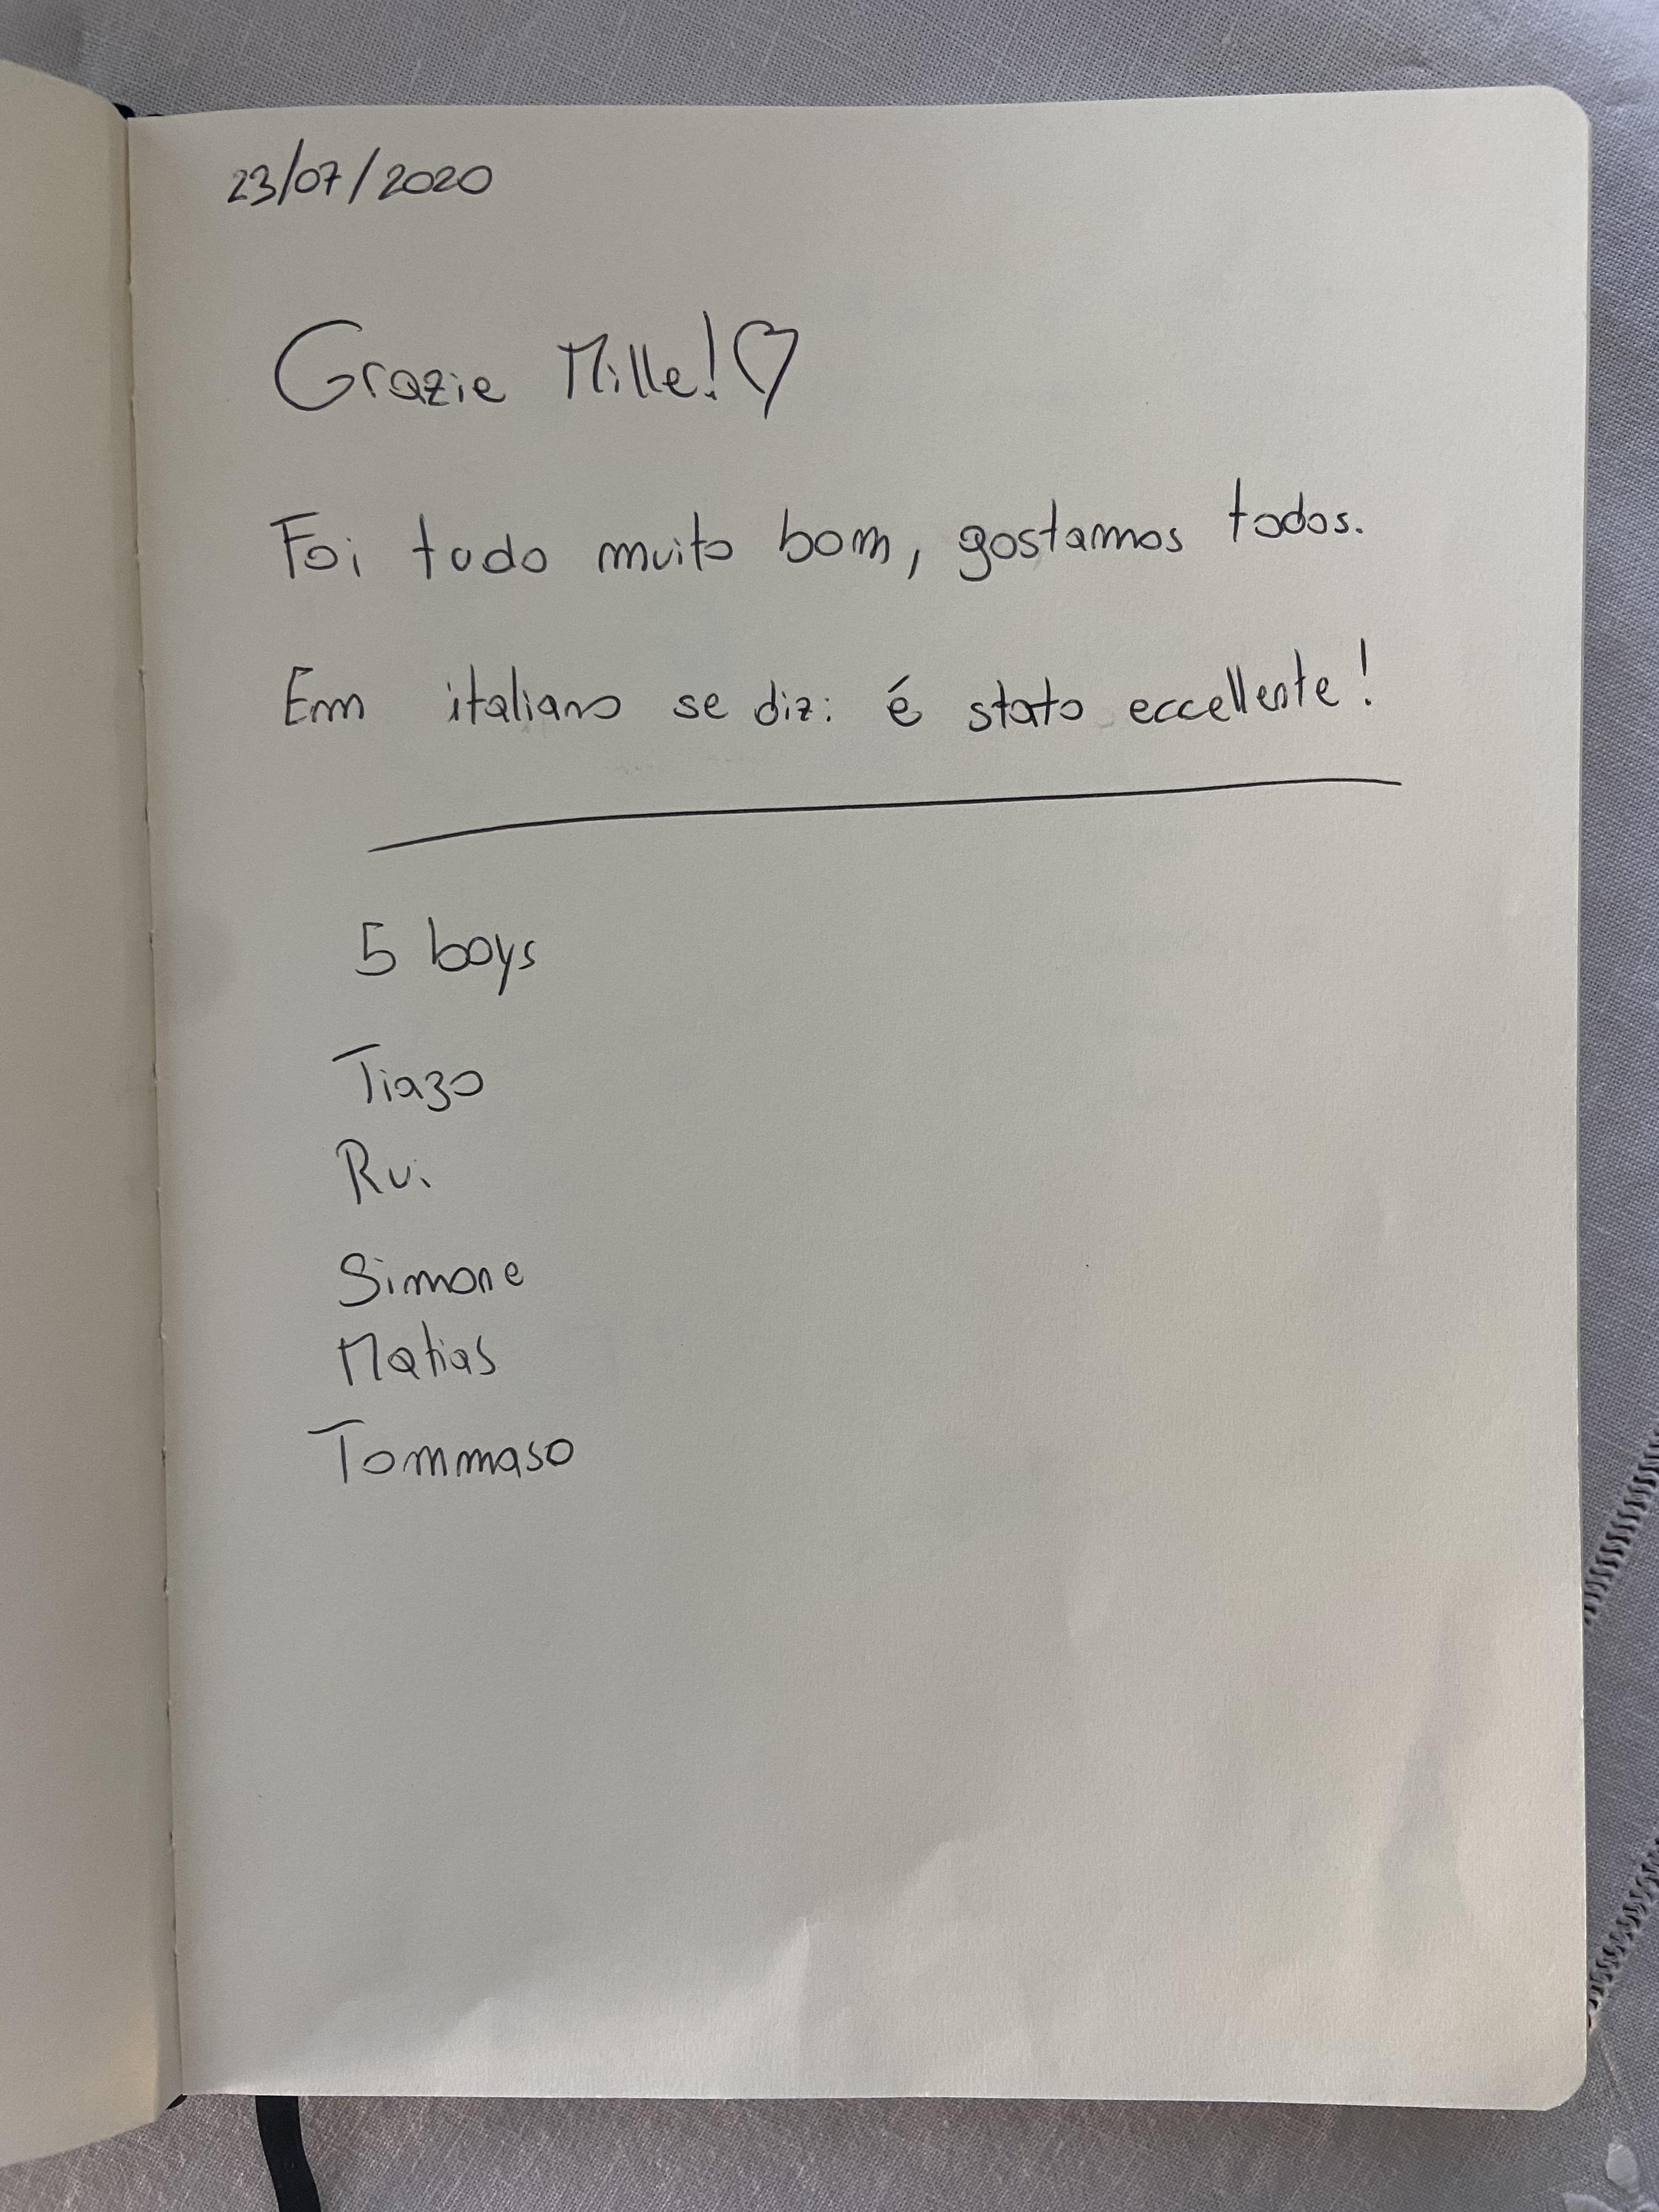 23/07/2020
Grazie Mille!♡
Foi tudo muito bom, gostamos todos.
Em italiano se diz: é stato eccellente!
5 boys
Tiago
Rui
Simone
Matias
Tommaso